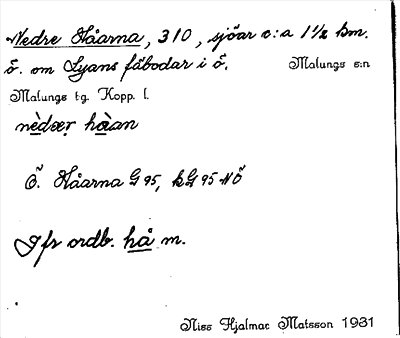 Nedre Håarna, 310, sjöar c:a 1½ km.
ö. om Lyans fäbodar i ö. Malungs s:n
Malungs tg. Kopp. l.
nèdær hàan
Ö. Håarna G 95, kG 95 NÖ
Jfr ordb. hå m.
Niss Hjalmar Matsson 1931